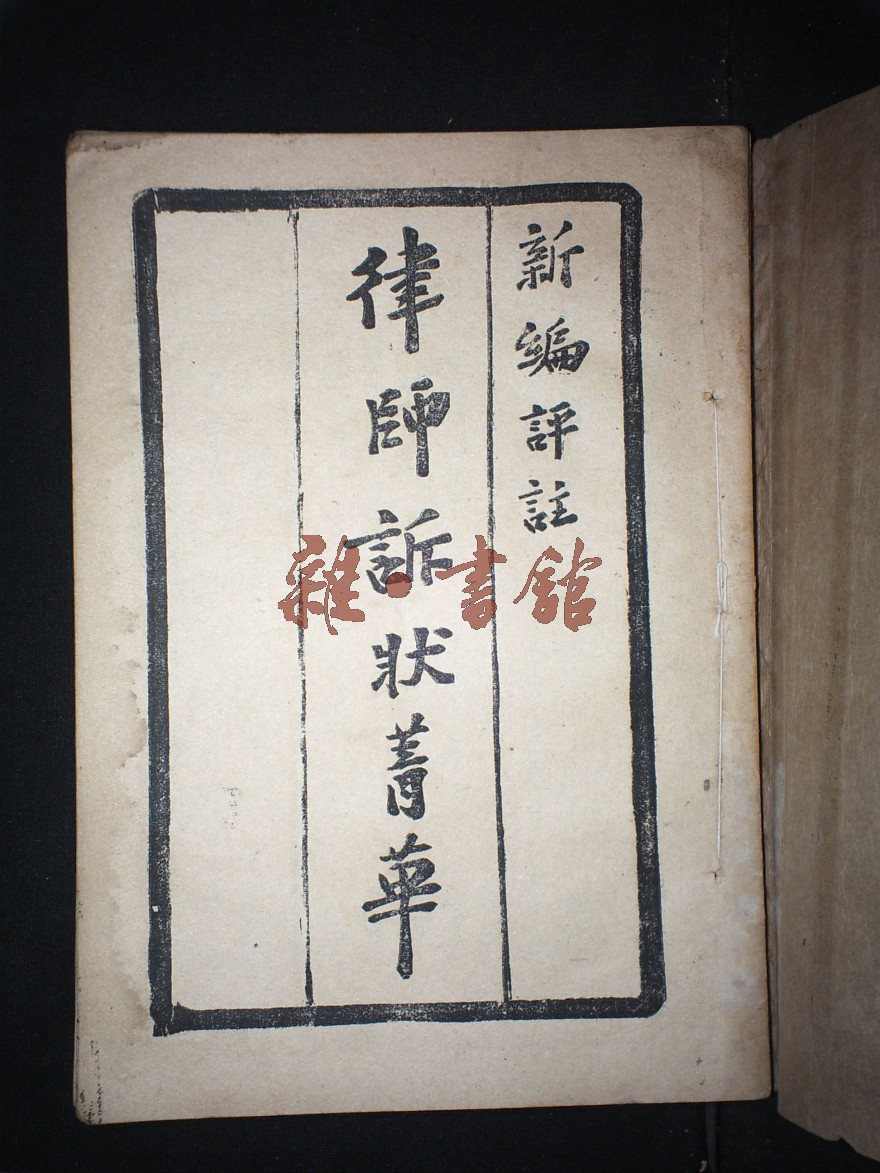 新編評註
律師訴狀菁華
雜·書館